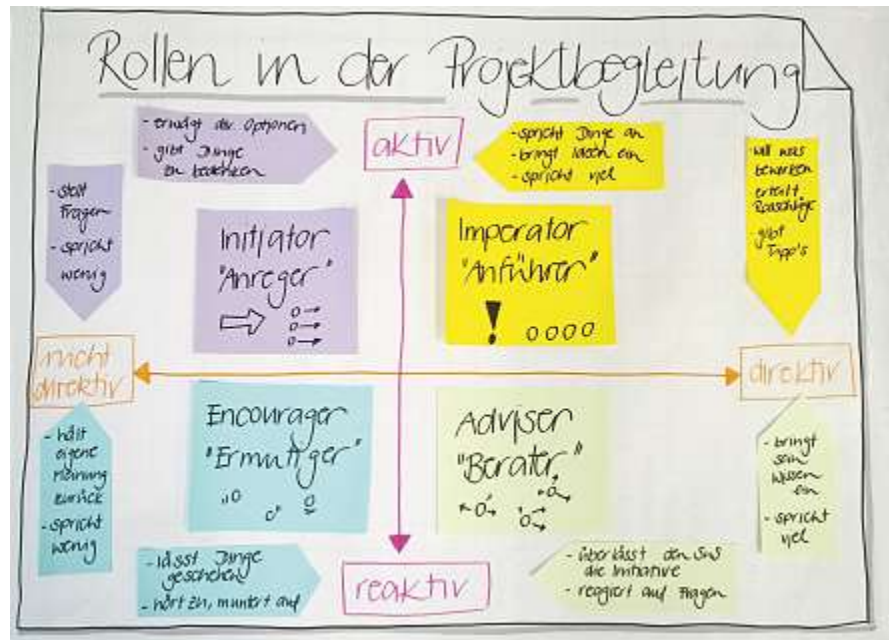 Rollen in der Projektbegleitung
- erwägt Optionen
- gibt Dinge
zu bedenken
aktiv
- spricht Dinge an
- bringt Ideen ein
- spricht viel
- will was
bewirken
erteilt
Ratschläge
gibt
Tipp's
- stellt
Fragen
- spricht
wenig
Initiator
"Anreger"
Imperator
"Anführer"
nicht
direktiv
direktiv
Encourager
"Ermutiger"
Adviser
"Berater"
- hält
eigene
Meinung
zurück
- spricht
wenig
- bringt
sein
Wissen
ein
- spricht
viel
- lässt Dinge
geschehen
- hört zu, muntert auf
reaktiv
- überlässt den SuS
die Initiative
- reagiert auf Fragen